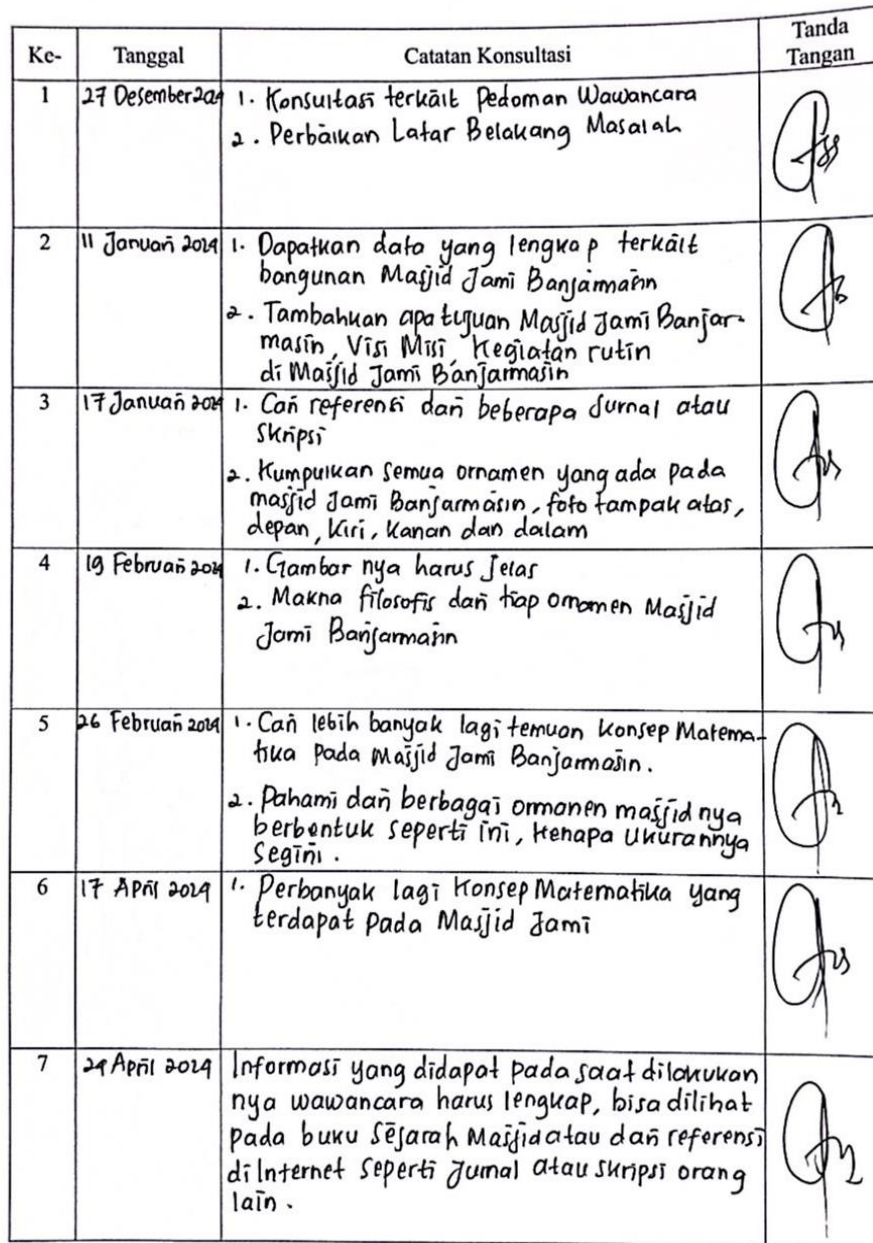 Ke- Tanggal Catatan Konsultasi Tanda Tangan
1 27 Desember 2024 1. Konsultasi terkait Pedoman Wawancara
2. Perbaikan Latar Belakang Masalah
2 11 Januari 2024 1. Dapatkan data yang lengkap terkait
bangunan Masjid Jami Banjarmasin
2. Tambahkan apa tujuan Masjid Jami Banjar-
masin, Visi Misi, Kegiatan rutin
di Masjid Jami Banjarmasin
3 17 Januari 2024 1. Cari referensi dari beberapa Jurnal atau
Skripsi
2. Kumpulkan semua ornamen yang ada pada
masjid Jami Banjarmasin, foto tampak atas,
depan, Kiri, Kanan dan dalam
4 19 Februari 2024 1. Gambar nya harus Jelas
2. Makna filosofis dari tiap ornamen Masjid
Jami Banjarmasin
5 26 Februari 2024 1. Cari lebih banyak lagi temuan konsep Matema-
tika pada Masjid Jami Banjarmasin.
2. Pahami dari berbagai ormanen masjid nya
berbentuk seperti ini, Kenapa Ukurannya
Segini.
6 17 April 2024 1. Perbanyak lagi Konsep Matematika yang
terdapat pada Masjid Jami
7 24 April 2024 Informasi yang didapat pada saat dilakukan
nya wawancara harus lengkap, bisa dilihat
pada buku Sejarah Masjid atau dari referensi
di Internet seperti Jurnal atau skripsi orang
lain.